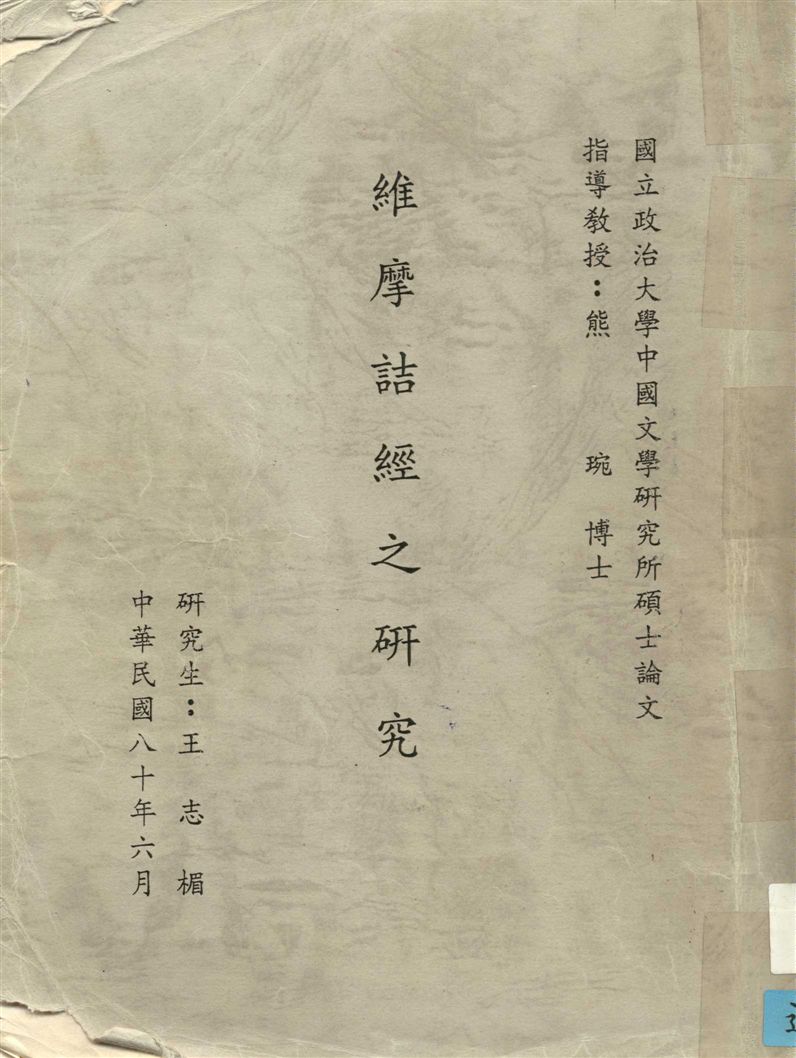 國立政治大學中國文學研究所碩士論文
指導教授：熊 琬 博士
維摩詰經之研究
研究生：王志楣
中華民國八十年六月